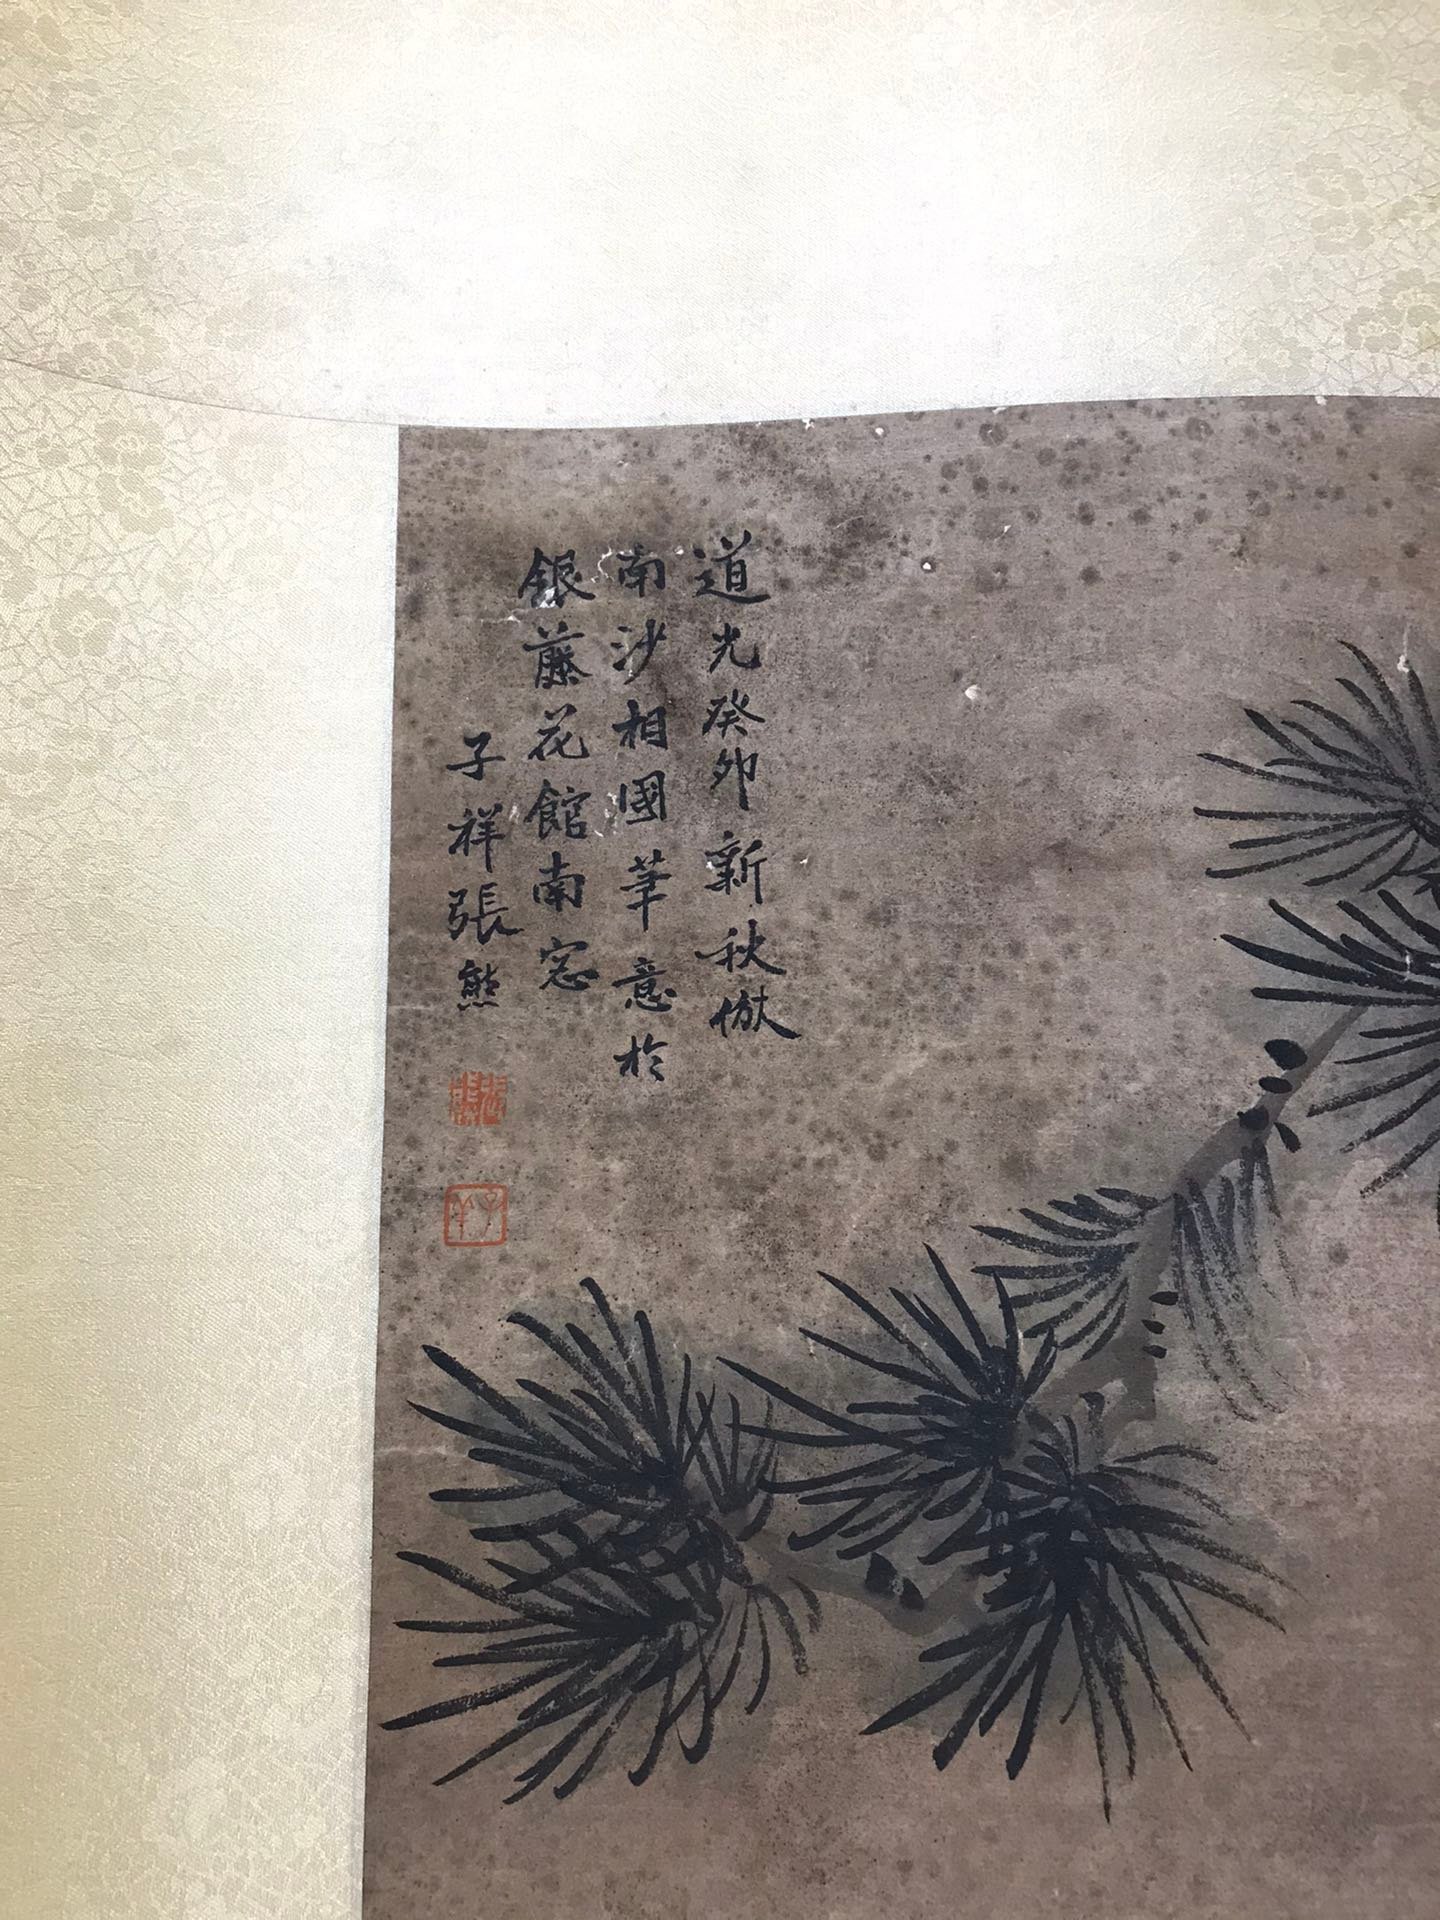 道光癸卯新秋倣
南沙相國筆意於
銀藤花館南窓
子祥張熊
子羊